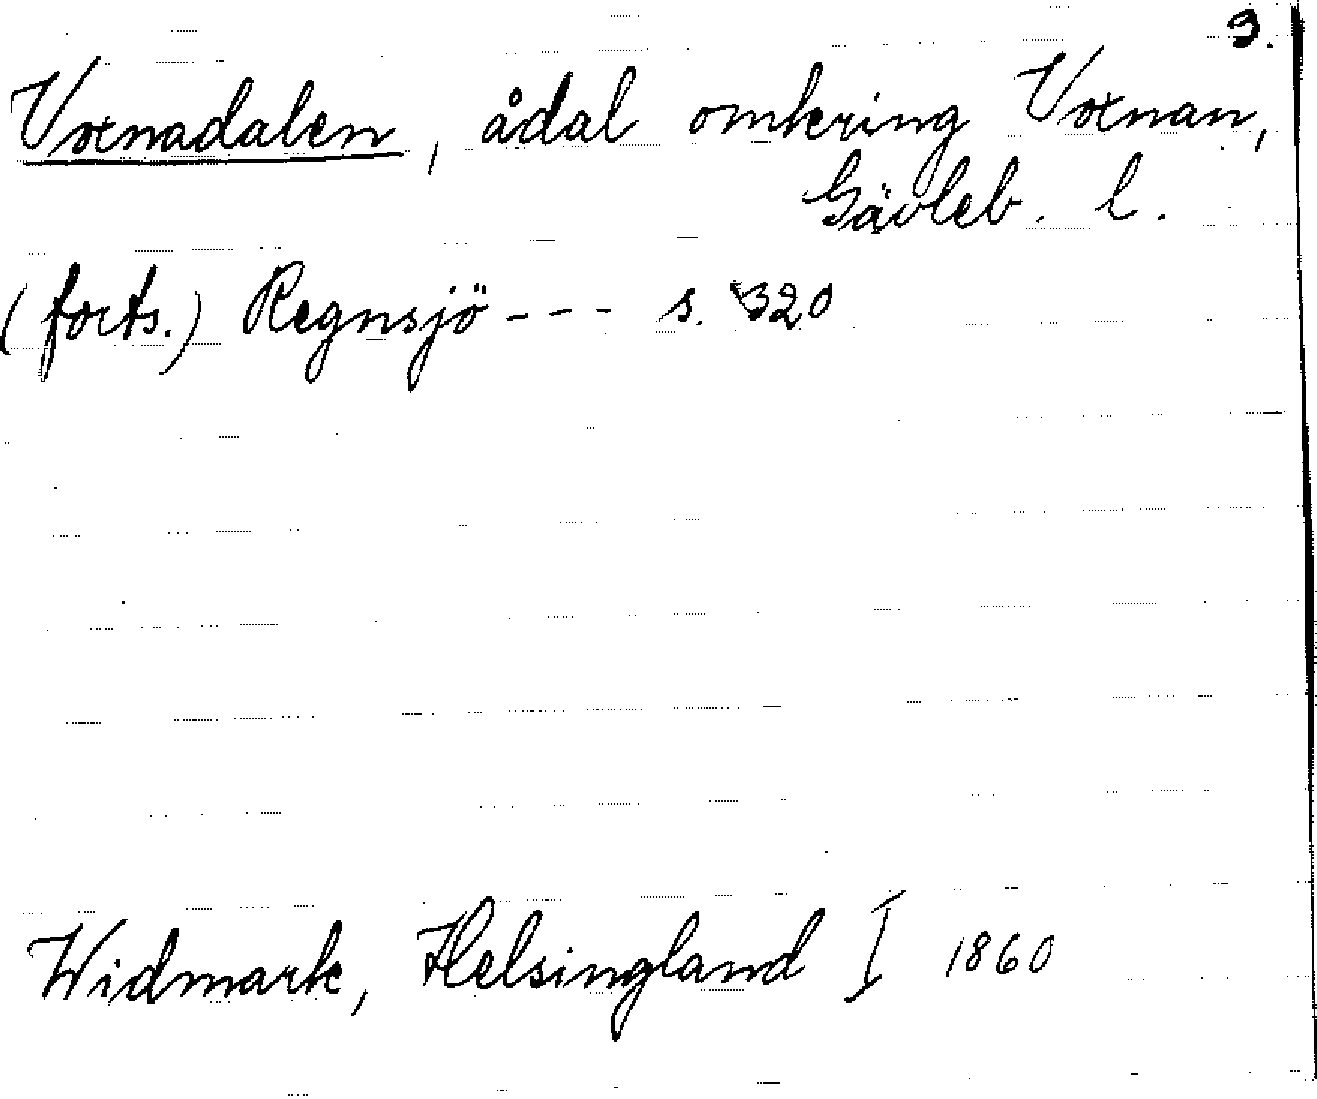 9.
Voxnadalen, ådal omkring Voxnan,
Gävleb. l.
(forts.) Regnsjö --- s. 320
Widmark, Helsingland I 1860